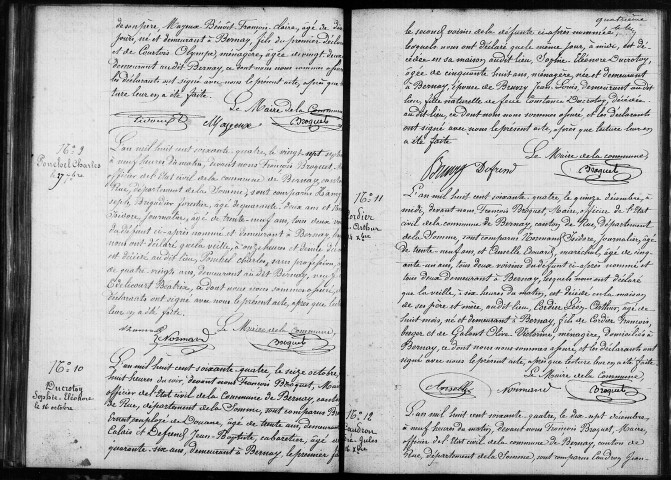 de son père, Mayeux Benoit François Claire, âgé de
jours, né et demeurant à Bernay, fils du premier
et de Courtois Olympe, ménagère, âgée de vingt
demeurant au dit Bernay, ce dont nous nous sommes
les déclarants ont signé avec nous le présent acte, après que
leur en a été faite.
Le Maire de la Commune
Mayeux Broquet
N° 9
Ponchel Charles
27 7bre
L'an mil huit cent soixante quatre, le vingt sept
à neuf heures du matin, devant nous François Broquet, Maire
officier de l'Etat civil de la commune de Bernay, canton
de Rue, département de la Somme, sont comparus
Brigadier forestier, âgé de quarante deux ans et
Isidore, journalier, âgé de trente neuf ans, tous deux
du défunt ci-après nommé et demeurant à Bernay,
nous ont déclaré que la veille, à onze heures et demie
est décédé au dit lieu, Ponchel Charles, sans profession,
de quatre vingts ans, demeurant au dit Bernay, veuf
Edelcourt Béatrix, ce dont nous nous sommes assuré,
déclarants ont signé avec nous le présent acte, après que
leur en a été faite.
Le Maire de la Commune,
Normand Broquet
N° 10
Ducrotoy
Sophie Eléonore
le 16 octobre
L'an mil huit cent soixante quatre, le seize octobre,
huit heures du soir, devant nous François Broquet, Maire
officier de l'Etat civil de la Commune de Bernay, canton
de Rue, département de la Somme, sont comparus
employé de Douane, âgé de trente ans, demeurant
Calais et Defrend Jean-Baptiste, cabaretier, âgé de
quarante six ans, demeurant à Bernay, le premier
quatrième
le second voisin de la défunte ci-après nommée
lesquels nous ont déclaré que le même jour, à midi, est
décédée en sa maison au dit lieu, Sophie Eléonore Ducrotoy,
âgée de cinquante huit ans, ménagère, née et demeurant
à Bernay, épouse de Jean Louis, demeurant au dit
lieu, fille naturelle de feue Constance Ducrotoy, décédée
au dit lieu, ce dont nous nous sommes assuré, et les déclarants
ont signé avec nous le présent acte, après que lecture leur en
a été faite.
Le Maire de la commune,
Defrend Broquet
N° 11
Cordier
Arthur
15 Xbre
L'an mil huit cent soixante quatre, le quinze décembre, à
midi, devant nous François Broquet, Maire, officier de l'Etat
civil de la commune de Bernay, canton de Rue, Département
de la Somme, sont comparus Normand Isidore, journalier, âgé
de trente-neuf ans et Anselle Edouard, maréchal, âgé de
cinquante-un ans, tous deux voisins du défunt ci-après nommé et
tous deux demeurant à Bernay, lesquels nous ont déclaré
que la veille, à six heures du matin, est décédé en la maison
de ses père et mère, au dit lieu, Cordier Léon Arthur, âgé de
huit mois, né et demeurant à Bernay, fils de Cordier François,
berger et de Galant Rose Victorine, ménagère, domiciliés à
Bernay, ce dont nous nous sommes assuré et les déclarants ont
signé avec nous le présent acte, après que lecture leur en a été faite.
Le Maire de la Commune,
Anselle Normand Broquet
N° 12
Caudron
Jules
16 Xbre
L'an mil huit cent soixante quatre, le dix sept décembre,
à neuf heures du matin, devant nous François Broquet, Maire,
officier de l'Etat civil de la commune de Bernay, canton de
Rue, département de la Somme, sont comparus Caudron Jean-